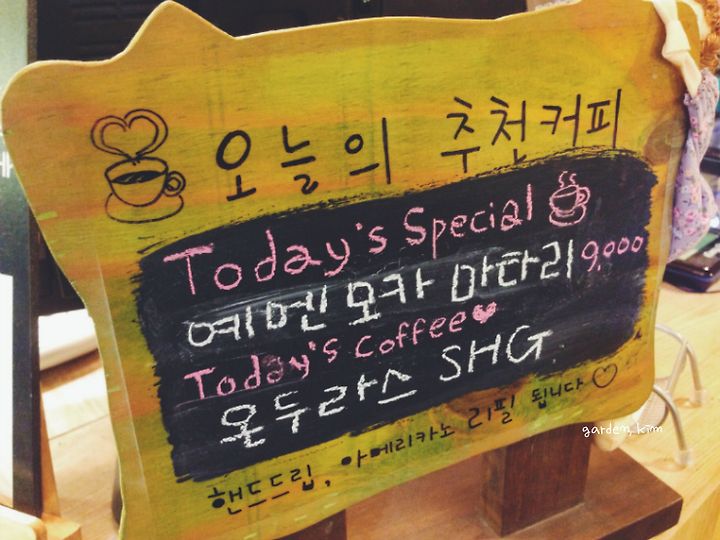 오늘의 추천커피
Today's Special
예멘 모카 마타리 9,000
Today's coffee
온두라스 SHG
핸드드립, 아메리카노 리필 됩니다
garden, kim